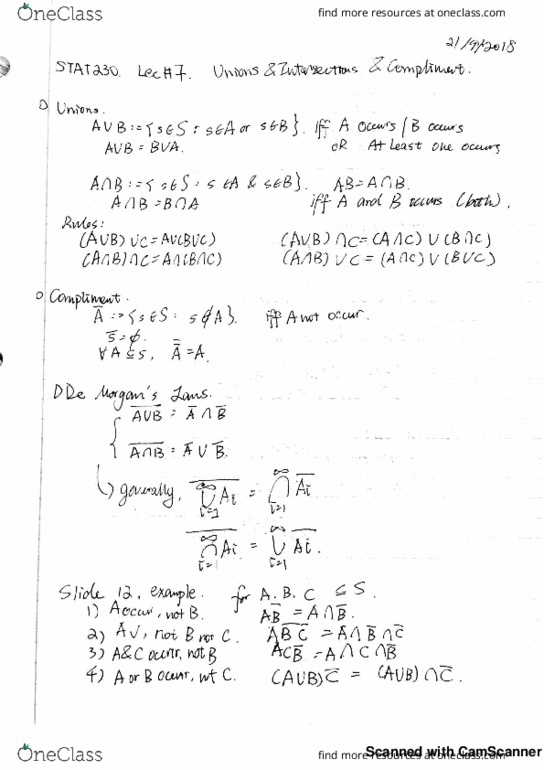 OneClass
find more resources at oneclass.com
21/9/2018
STAT230. Lec#7. Unions & Intersections & Compliment.
Unions.
A∪B := {s∈S : s∈A or s∈B}. iff A occurs / B occurs
A∪B = B∪A. OR At least one occurs
A∩B := {s∈S : s∈A & s∈B}. AB = A∩B.
A∩B = B∩A iff A and B occurs (both).
Rules:
(A∪B)∪C = A∪(B∪C) (A∪B)∩C = (A∩C)∪(B∩C)
(A∩B)∩C = A∩(B∩C) (A∩B)∪C = (A∩C)∪(B∪C)
Compliment.
A̅ := {s∈S : s∉A}. iff A not occur.
S̅ = ϕ.
∀A⊆S, A̿ = A.
De Morgan's Laws.
\overline{A∪B} = A̅∩B̅
\overline{A∩B} = A̅∪B̅.
generally, \overline{⋃_{i=1}^{∞} Ai} = ⋂_{i=1}^{∞} \overline{Ai}
\overline{⋂_{i=1}^{∞} Ai} = ⋃_{i=1}^{∞} \overline{Ai}.
Slide 12, example. for A, B, C ⊆ S.
1) A occur, not B. AB̅ = A∩B̅.
2) A√, not B nor C. AB̅C̅ = A∩B̅∩C̅
3) A&C occur, not B ACB̅ = A∩C∩B̅
4) A or B occur, not C. (A∪B)C̅ = (A∪B)∩C̅.
OneClass
find more resources at oneclass.com
Scanned with CamScanner